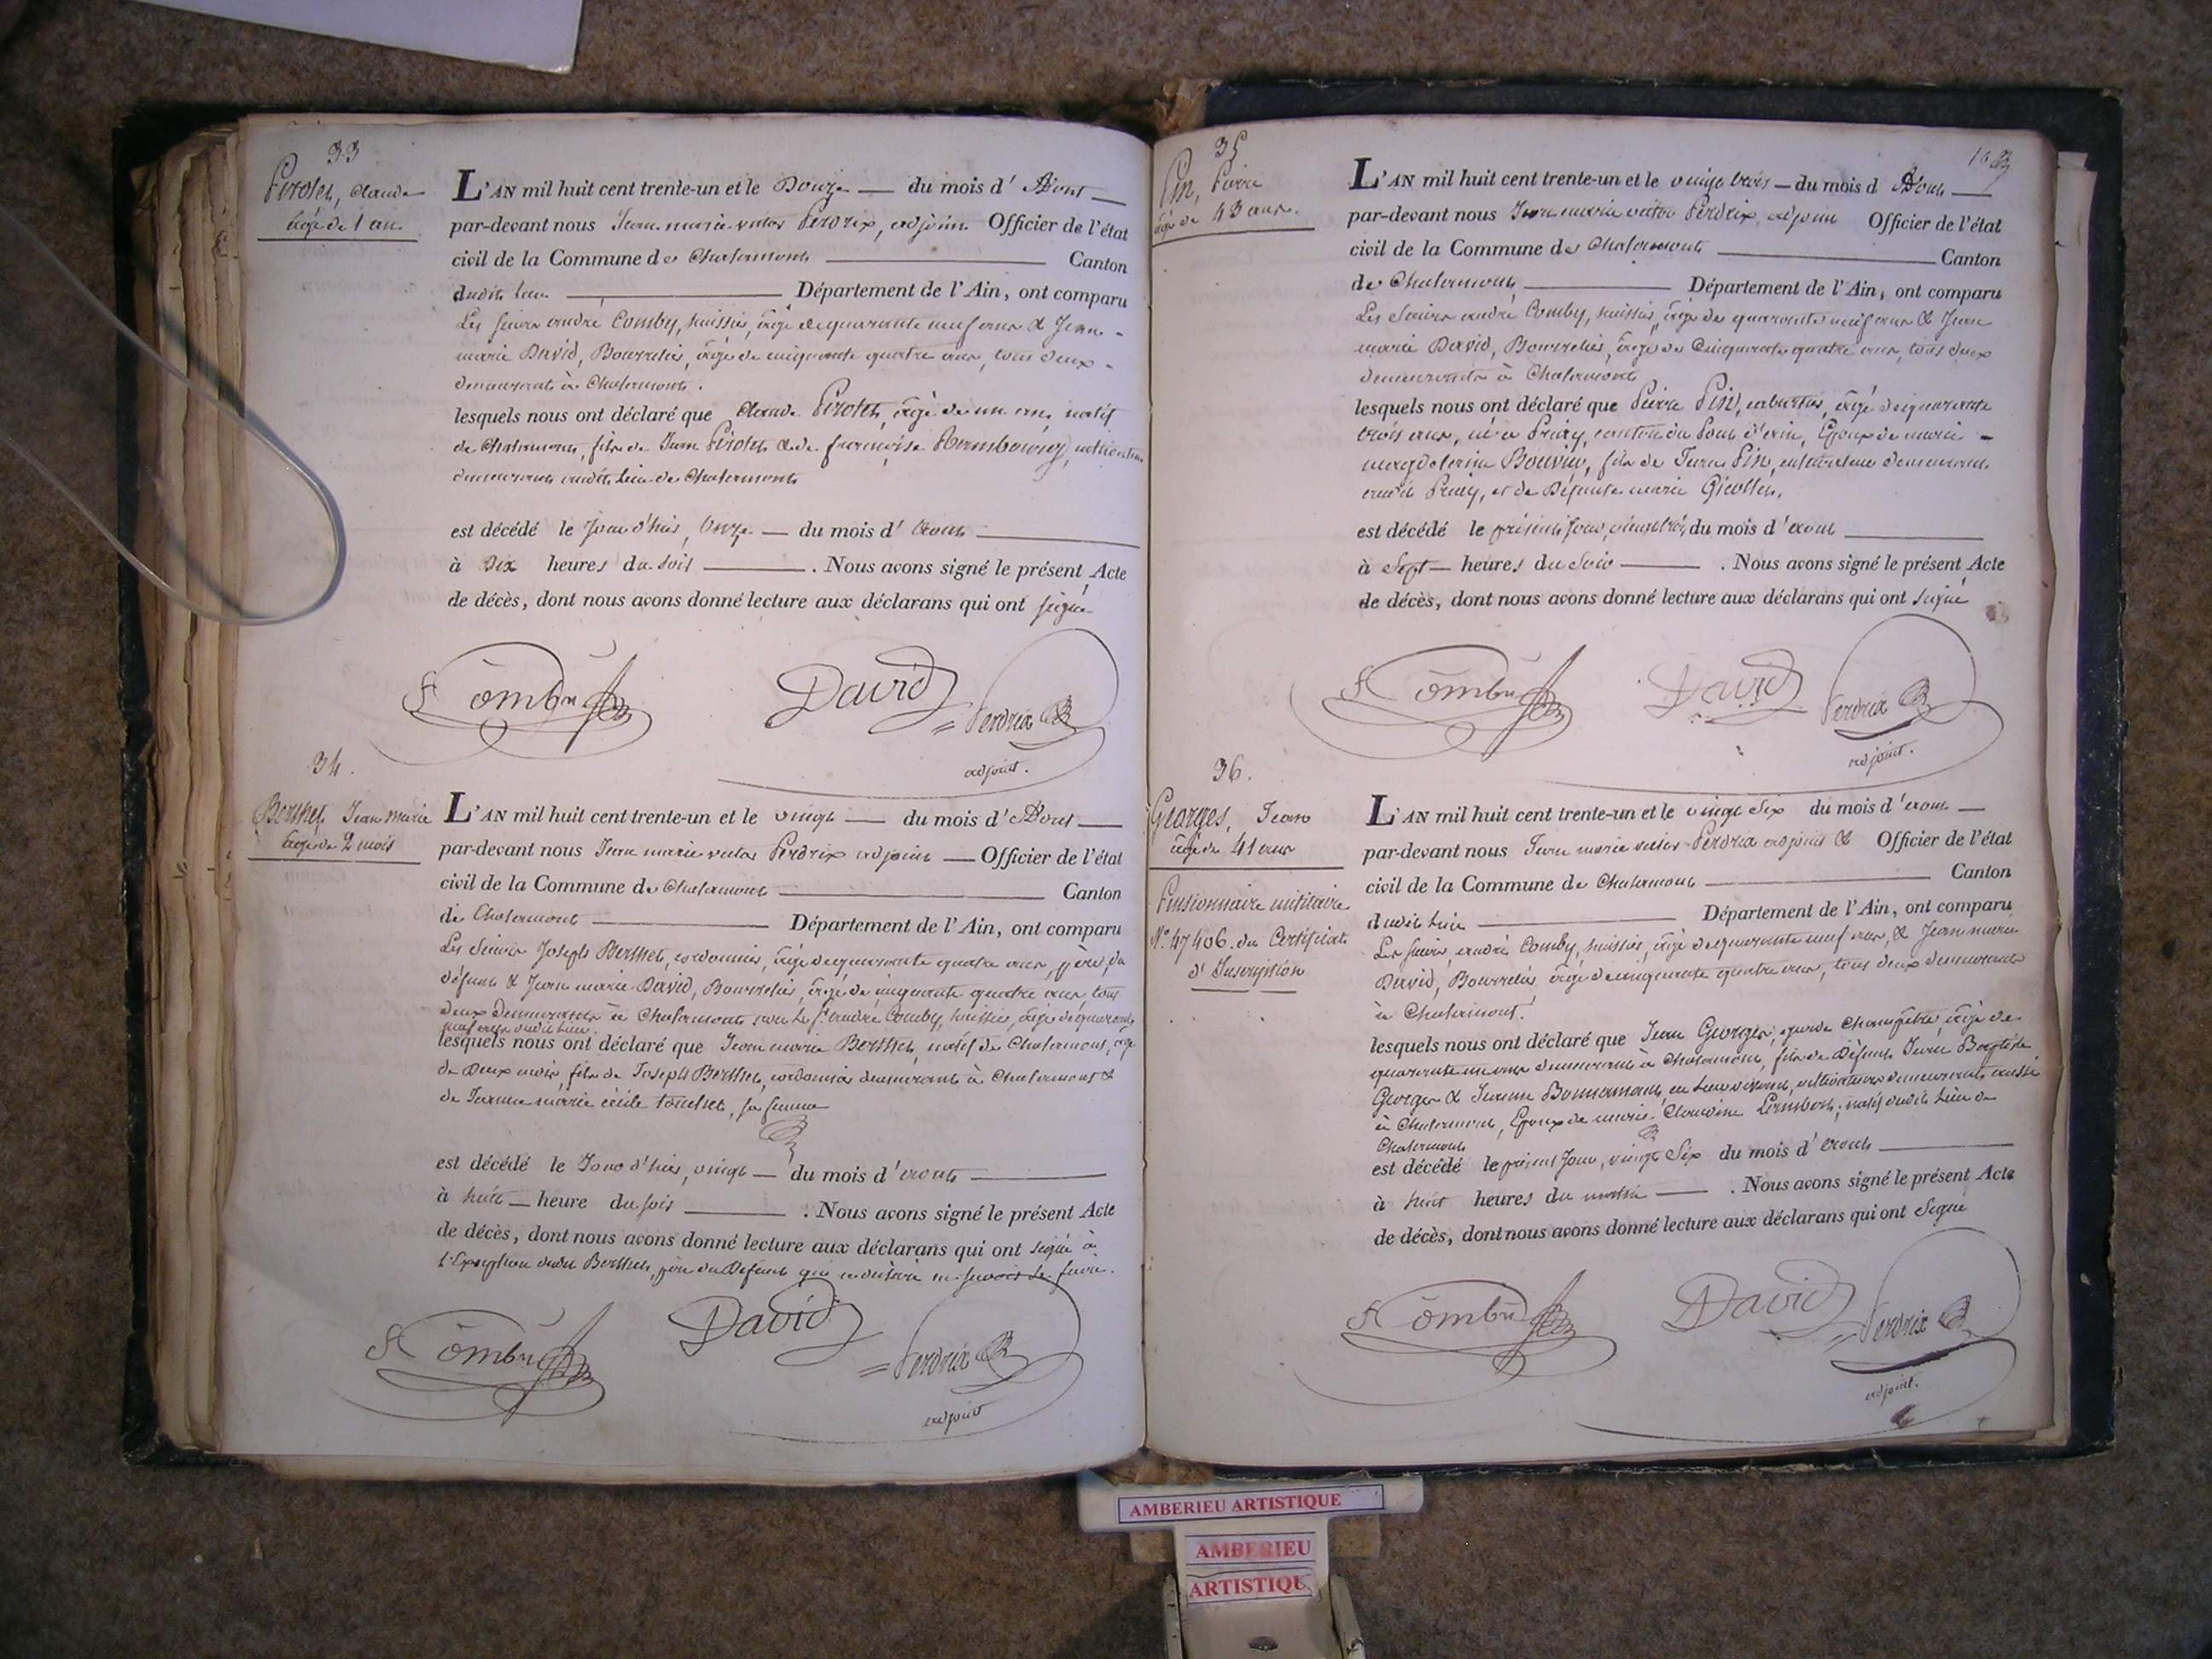 33
Pirolet, Claude
âgé de 1 an.
L'AN mil huit cent trente-un et le Douze — du mois d' Aout —
par-devant nous Jean marie victor Perdrix, adjoint Officier de l'état
civil de la Commune de Chalamont — Canton
dudit lieu — Département de l'Ain, ont comparu
Les sieurs andré Comby, huissier, âgé de quarante neuf ans & Jean-
marie David, Bourrelier, âgé de cinquante quatre ans, tous deux
demeurant à Chalamont.
lesquels nous ont déclaré que Claude Pirolet, âgé de un an, natif
de Chalamont, fils de Jean Pirolet & de françoise
demeurant audit Lieu de Chalamont
est décédé le Jour d'hier, onze — du mois d' aout —
à Dix heures du soir — . Nous avons signé le présent Acte
de décès, dont nous avons donné lecture aux déclarans qui ont signé
Comby David Perdrix
adjoint.
34.
Berthet, Jean Marie
âgé de 2 mois
L'AN mil huit cent trente-un et le vingt — du mois d' Aout —
par-devant nous Jean marie victor Perdrix adjoint — Officier de l'état
civil de la Commune de Chalamont — Canton
de Chalamont — Département de l'Ain, ont comparu
Les Sieurs Joseph Berthet, cordonnier, âgé de quarante quatre ans, père du
défunt & Jean marie David, Bourrelier, âgé de cinquante quatre ans, tous
deux demeurant à Chalamont, le Sr. andré Comby, huissier, âgé de quarante
neuf ans audit Lieu.
lesquels nous ont déclaré que Jean marie Berthet, natif de Chalamont, âgé
de Deux mois, fils de Joseph Berthet, cordonnier demeurant à Chalamont &
de Jeanne marie cécile, sa femme
est décédé le Jour d'hier, vingt — du mois d' aout —
à huit — heure du soir — . Nous avons signé le présent Acte
de décès, dont nous avons donné lecture aux déclarans qui ont signé à
l'Exception dudit Berthet, père du Défunt qui a déclaré ne savoir le faire.
Comby David Perdrix
adjoint
35
Pin, Pierre
âgé de 43 ans.
L'AN mil huit cent trente-un et le vingt trois — du mois d' Aout —
par-devant nous Jean marie victor Perdrix, adjoint Officier de l'état
civil de la Commune de Chalamont — Canton
de Chalamont — Département de l'Ain, ont comparu
Les Sieurs andré Comby, huissier, âgé de quarante neuf ans & Jean
marie David, Bourrelier, âgé de Cinquante quatre ans, tous deux
demeurants à Chalamont
lesquels nous ont déclaré que Pierre Pin, âgé de quarante
trois ans, né à Priay, canton du Pont d'ain, Epoux de marie -
magdelaine Bouvier, fils de Jean Pin, cultivateur demeurant
audit Priay, et de Défunte marie
est décédé le présent Jour, vingt trois, du mois d' aout —
à Sept — heures du Soir — . Nous avons signé le présent Acte
de décès, dont nous avons donné lecture aux déclarans qui ont signé
Comby David Perdrix
adjoint.
36.
Georges, Jean
âgé de 41 ans
Pensionnaire militaire
No. 47406. du Certificat
d'Inscription
L'AN mil huit cent trente-un et le vingt Six du mois d' aout —
par-devant nous Jean marie victor Perdrix adjoint & Officier de l'état
civil de la Commune de Chalamont — Canton
dudit Lieu — Département de l'Ain, ont comparu
Les sieurs, andré Comby, huissier, âgé de quarante neuf ans, & Jean marie
David, Bourrelier, âgé de cinquante quatre ans, tous deux demeurants
à Chalamont.
lesquels nous ont déclaré que Jean Georges, garde Champêtre, âgé de
quarante un ans demeurant à Chalamont, fils de Défunts Jean Baptiste
Georges & Jeanne en Leur vivant, cultivateurs demeurants aussi
à Chalamont, Epoux de marie Claudine natif dudit Lieu de
Chalamont
est décédé le présent Jour, vingt Six du mois d' aout —
à huit heures du matin — . Nous avons signé le présent Acte
de décès, dont nous avons donné lecture aux déclarans qui ont Signé
Comby David Perdrix
adjoint.
AMBERIEU ARTISTIQUE
AMBERIEU
ARTISTIQU